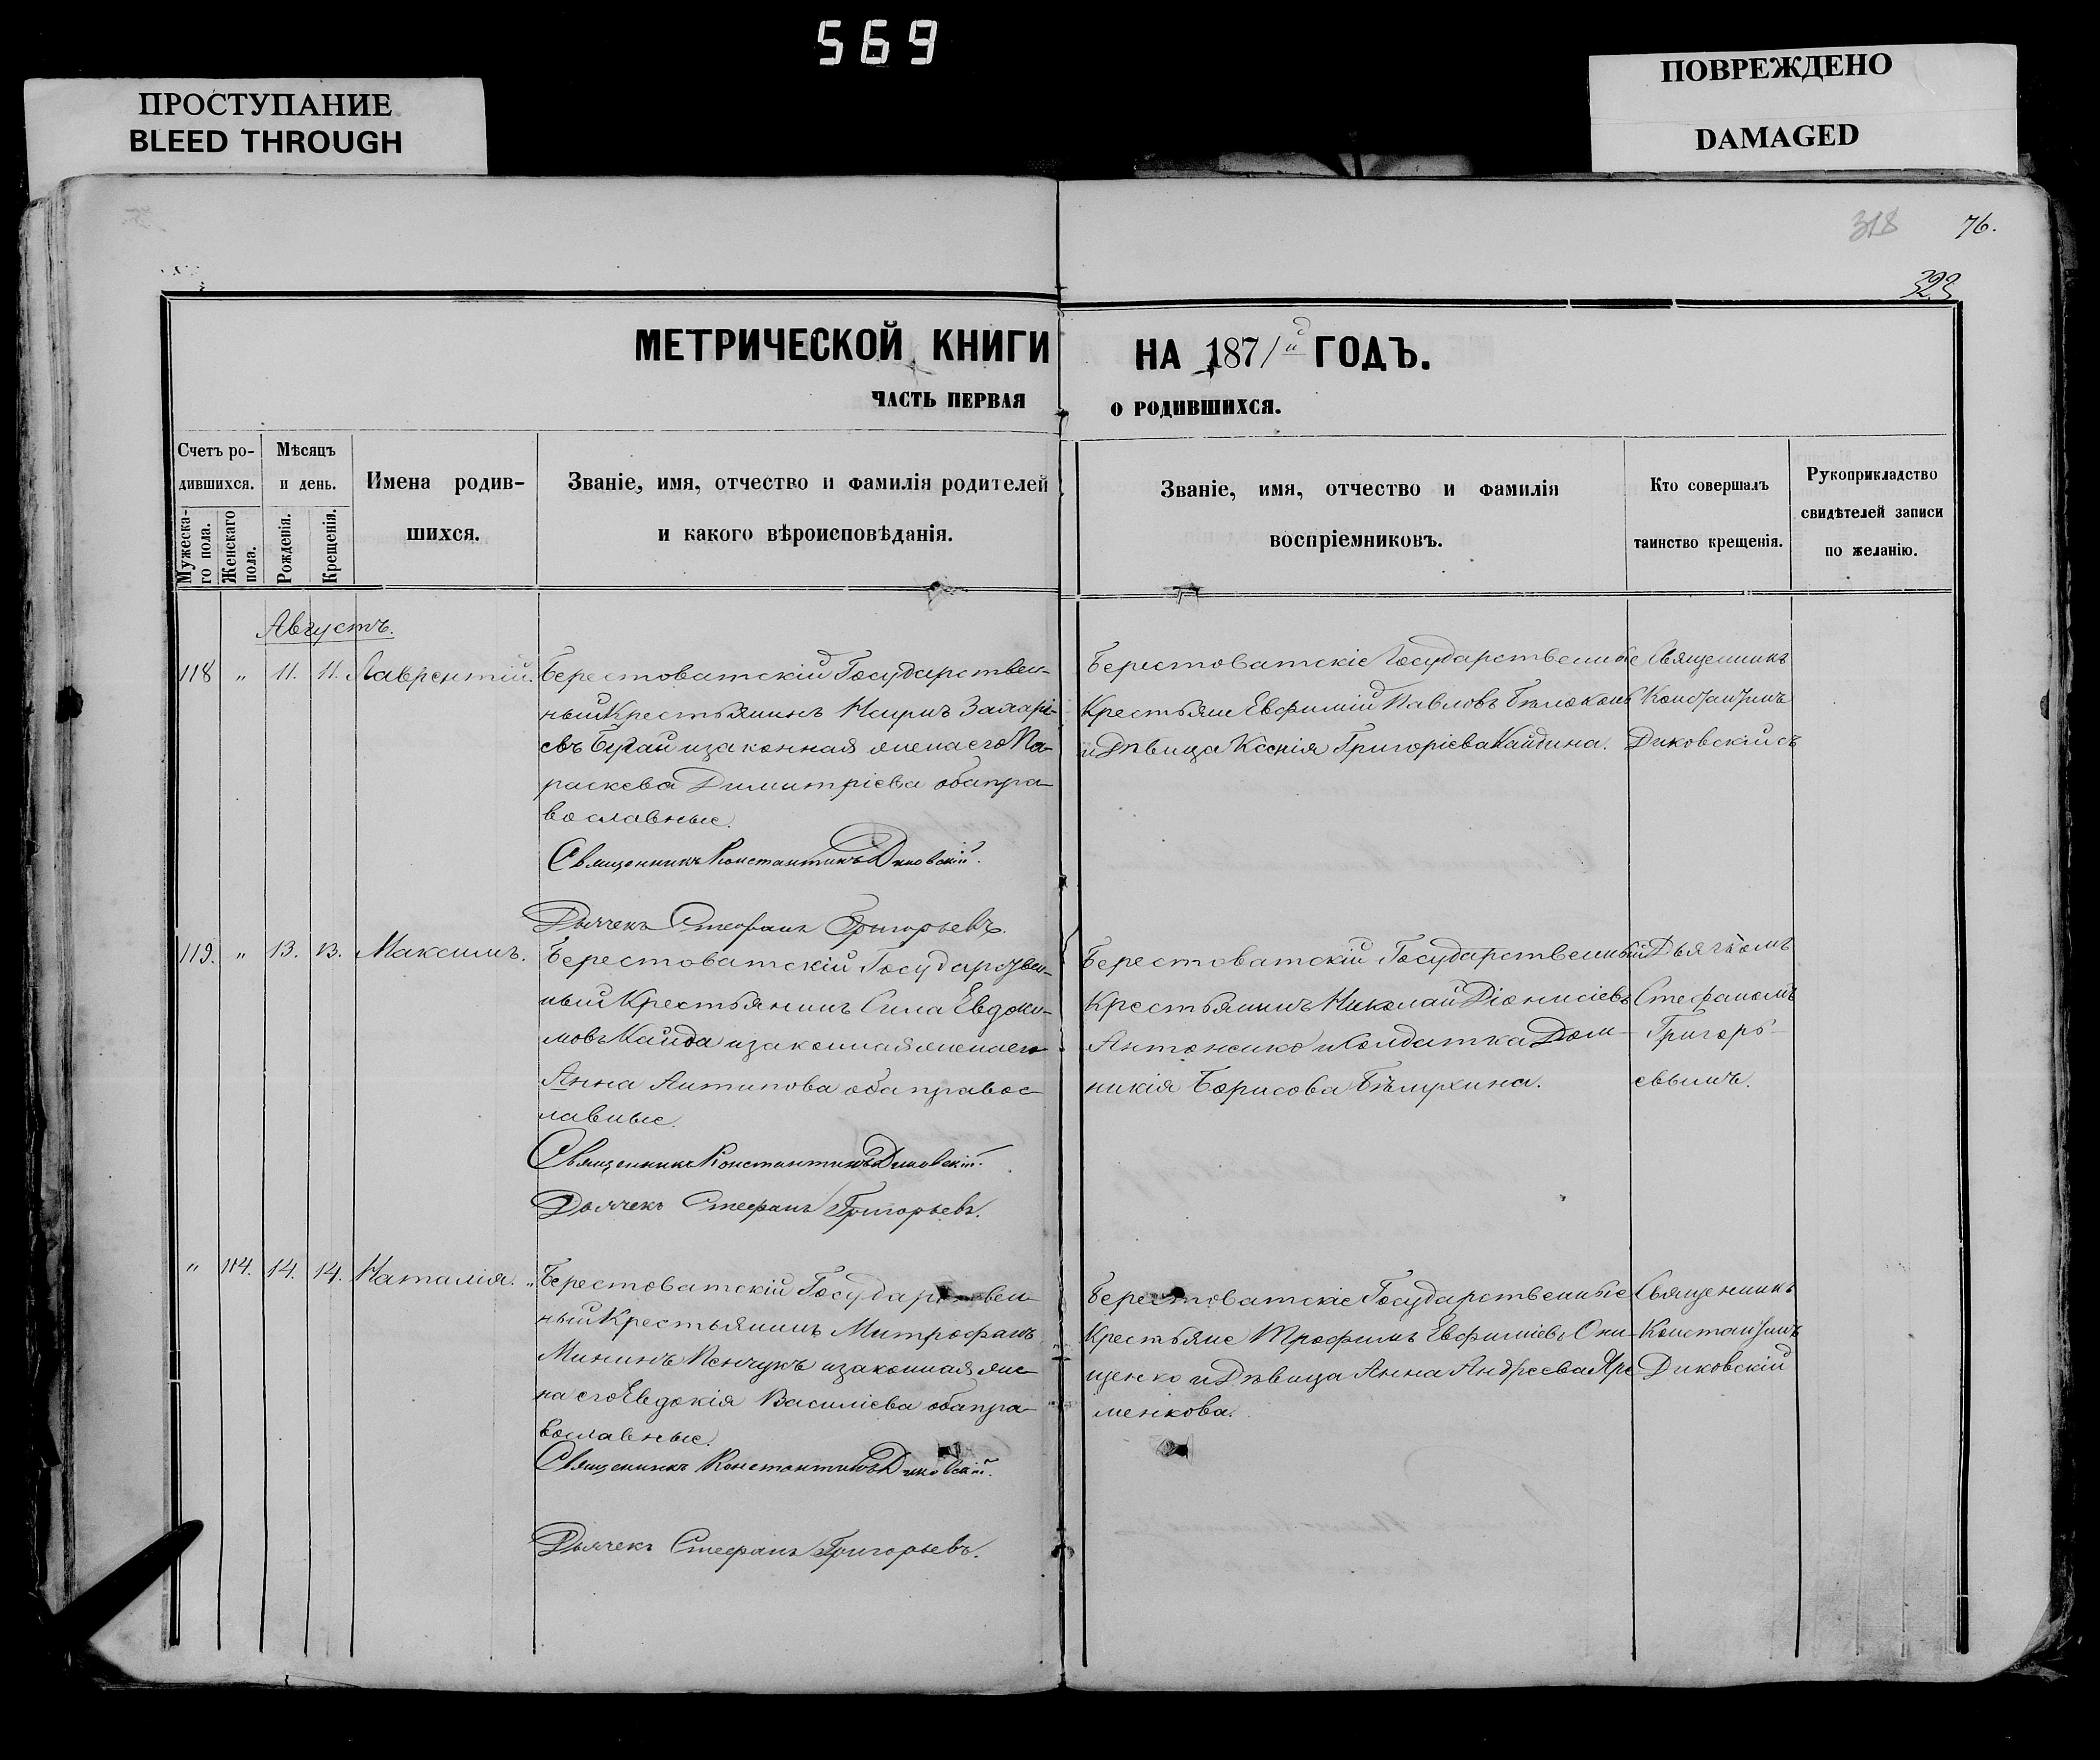 569
ПРОСТУПАНИЕ
BLEED THROUGH
ПОВРЕЖДЕНО
DAMAGED
318 76.
323
МЕТРИЧЕСКОЙ КНИГИ НА 1871й ГОДЪ.
ЧАСТЬ ПЕРВАЯ О РОДИВШИХСЯ.
Счетъ ро-
дившихся.
Мужеска-
го пола.
Женскаго
пола.
Мѣсяцъ
и день.
Рожденія.
Крещенія.
Имена родив-
шихся.
Званіе, имя, отчество и фамилія родителей
и какого вѣроисповѣданія.
Званіе, имя, отчество и фамилія
воспріемниковъ.
Кто совершалъ
таинство крещенія.
Рукоприкладство
свидѣтелей записи
по желанію.
Августъ.
118 " 11. 11. Лаврентій.
Берестоватскій Государствен-
ный Крестьянинъ
евъ Бугай и законная жена его Па-
раскева Димитріева оба пра-
вославные.
Священникъ Константинъ Диковскій.
Дьячекъ Стефанъ Григорьевъ.
Берестоватскіе Государственные
Крестьяне Евфимій Павловъ Бѣлоконь
и Дѣвица Ксенія Григоріева Кайдина.
Священникъ
Константинъ
Диковскій съ
119. " 13. 13. Максимъ.
Берестоватскій Государствен-
ный Крестьянинъ Сила Евдоки-
мовъ Кайда и законная жена его
Анна Антипова оба правос-
лавные.
Священникъ Константинъ Диковскій.
Дьячекъ Стефанъ Григорьевъ.
Берестоватскій Государственный
Крестьянинъ Николай Діонисіевъ
Антоненко и Солдатка Дом-
никія Борисова Бѣлухина.
Дьячкомъ
Стефаномъ
Григорь-
евымъ.
" 114. 14. 14. Наталія.
"Берестоватскій Государствен-
ный Крестьянинъ Митрофанъ
Мининъ Пенчукъ и законная же-
на его Евдокія Василіева оба пра-
вославные.
Священникъ Константинъ Диковскій.
Дьячекъ Стефанъ Григорьевъ.
Берестоватскіе Государственные
Крестьяне Трофимъ Евфиміевъ Они-
щенко и Дѣвица Анна Андреева Яре
менкова.
Священникъ
Константинъ
Диковскій